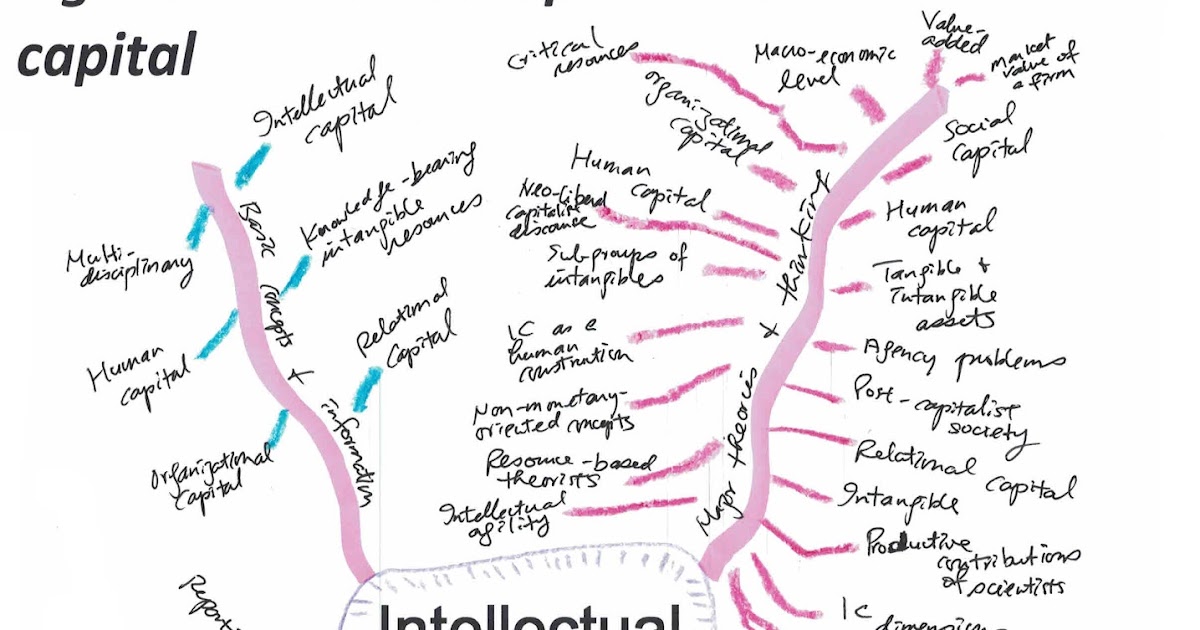 capital
Intellectual
capital
Basic concepts + information
Multi-
disciplinary
Knowledge-bearing
intangible
resources
Human
capital
Relational
capital
Organizational
capital
Critical
resources
Macro-economic
level
Value-
added
market
value of
a firm
organizational
capital
Social
capital
Human
capital
Neo-liberal
capitalist
discourse
Major theories + thinking
Human
capital
Sub-groups of
intangibles
Tangible +
intangible
assets
IC as a
human
construction
Agency problems
Non-monetary-
oriented concepts
Post-capitalist
society
Resource-based
theorists
Relational
capital
Intellectual
agility
Intangible
Productive
contributions
of scientists
IC
Intellectual